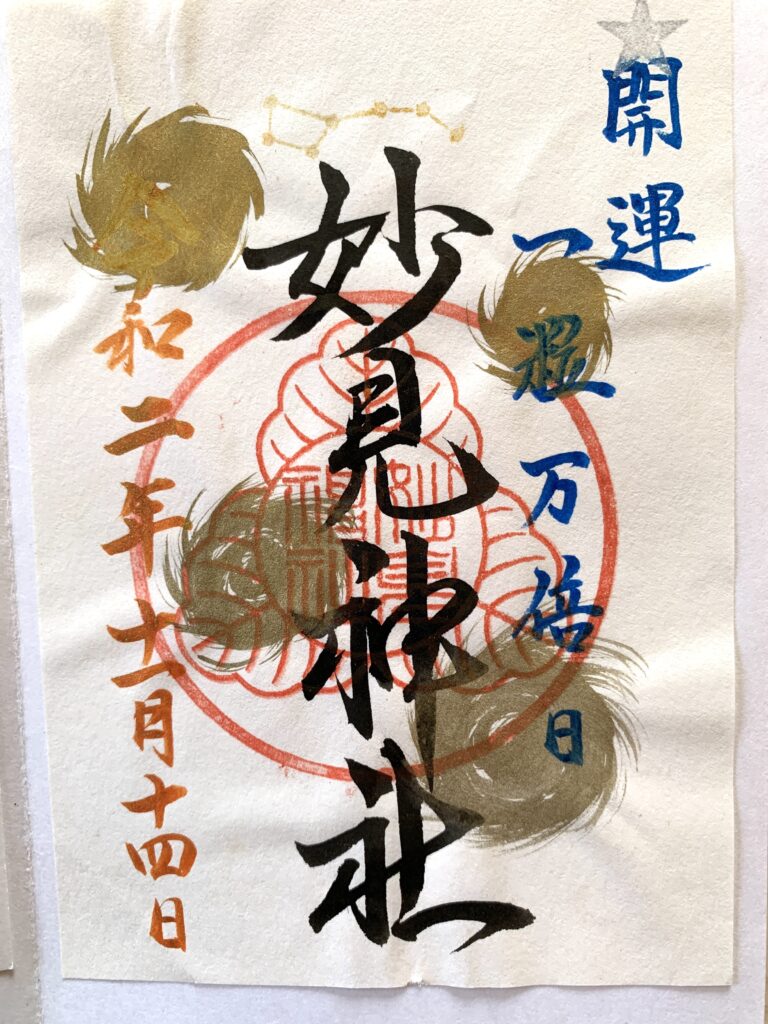 開運
一粒万倍日
妙見神社
令和二年十一月十四日